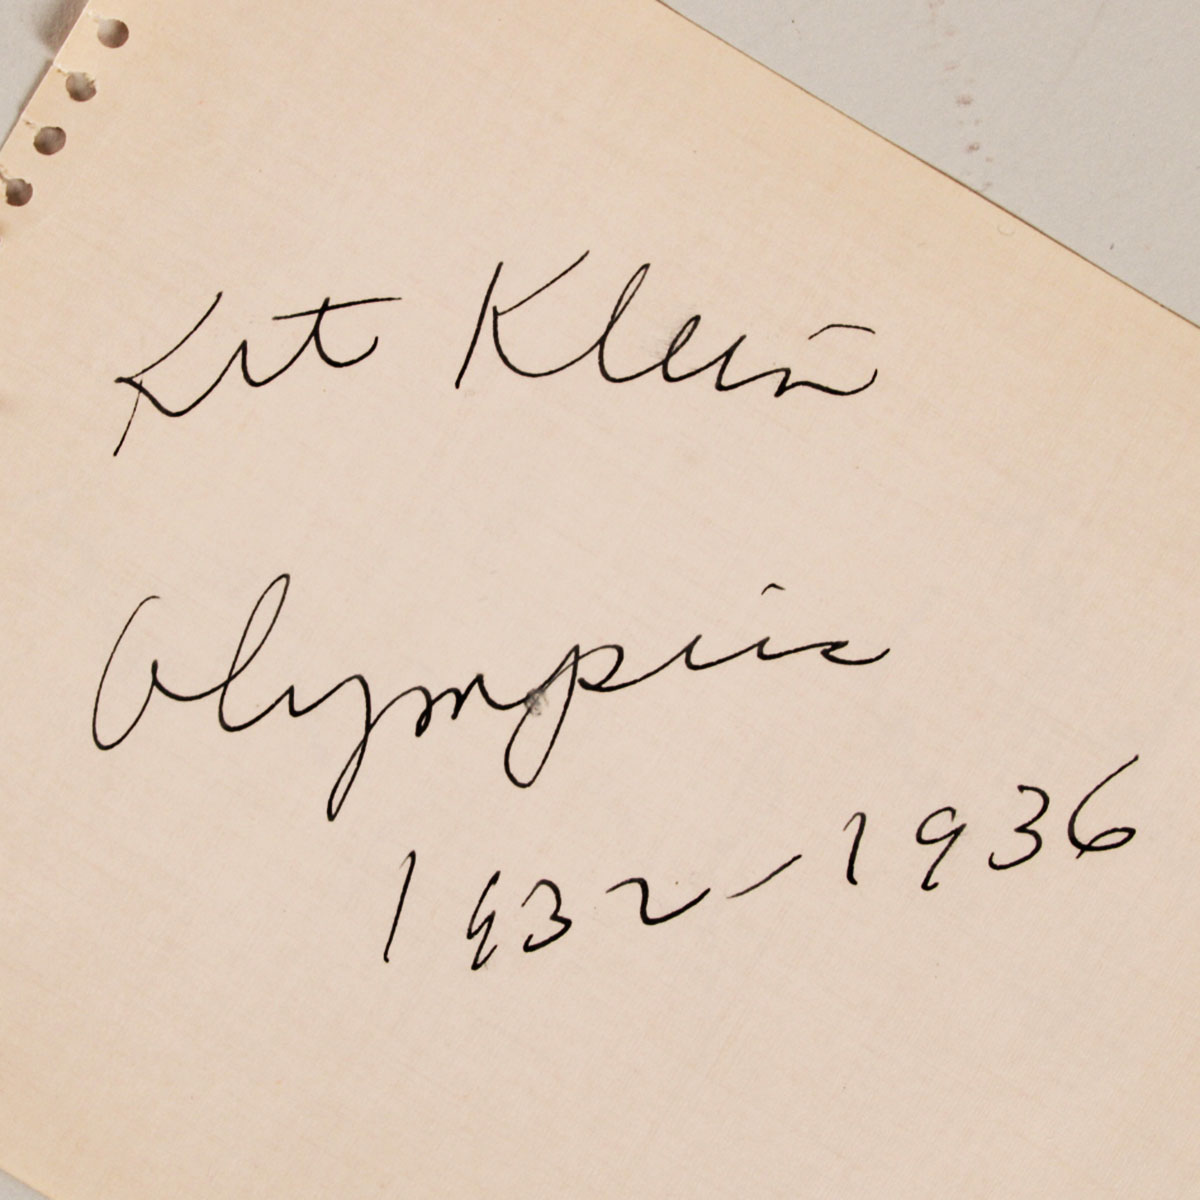 Kit Klein
Olympic
1932-1936